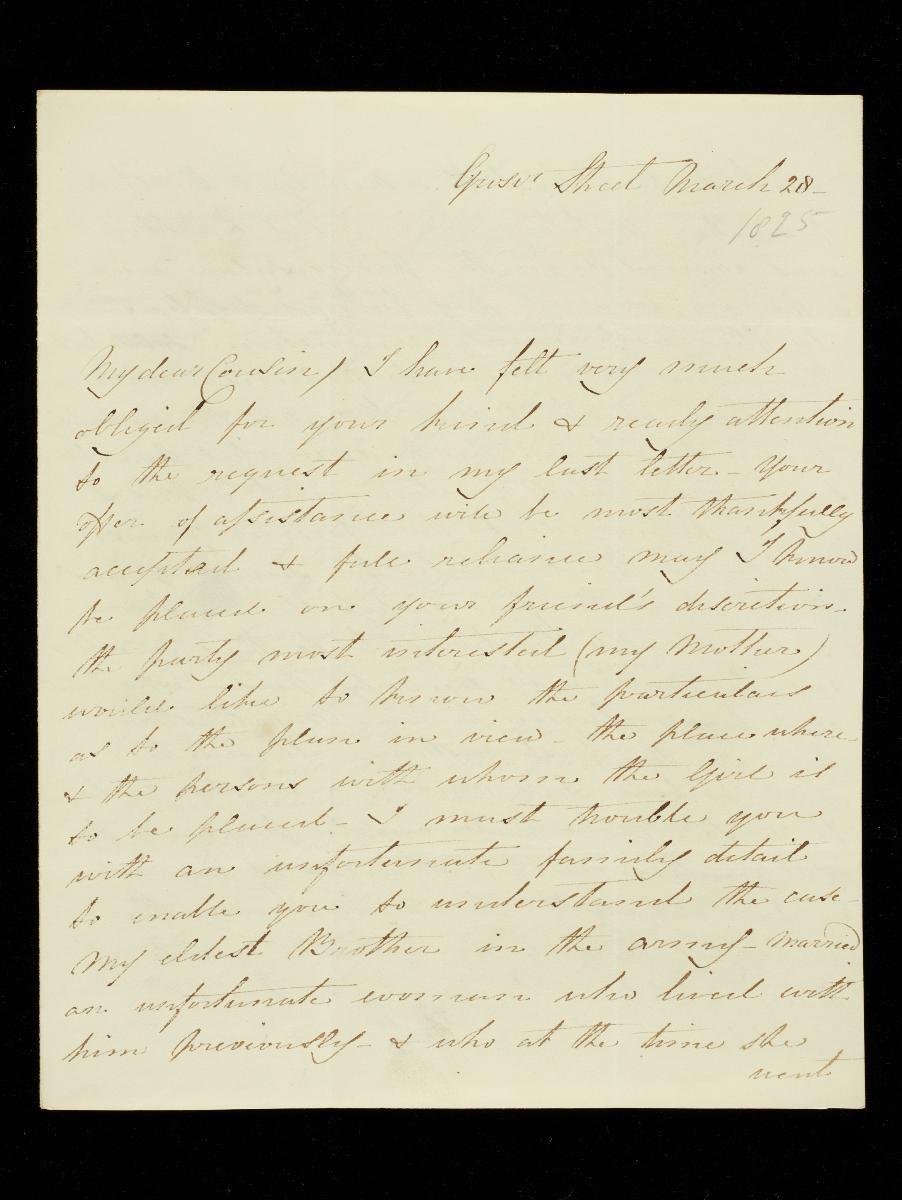 Grosr. Street March 28-
1825
My dear Cousin/ I have felt very much
obliged for your kind & ready attention
to the request in my last letter - Your
offer of assistance will be most thankfully
accepted & full reliance may I know
be placed on your friend's discretion -
the party most interested (my Mother)
would like to know the particulars
as to the plan in view - the place where
& the persons with whom the Girl is
to be placed - I must trouble you
with an unfortunate family detail
to enable you to understand the case -
My eldest Brother in the army - married
an unfortunate woman who lived with
him previously - & who at the time she
went